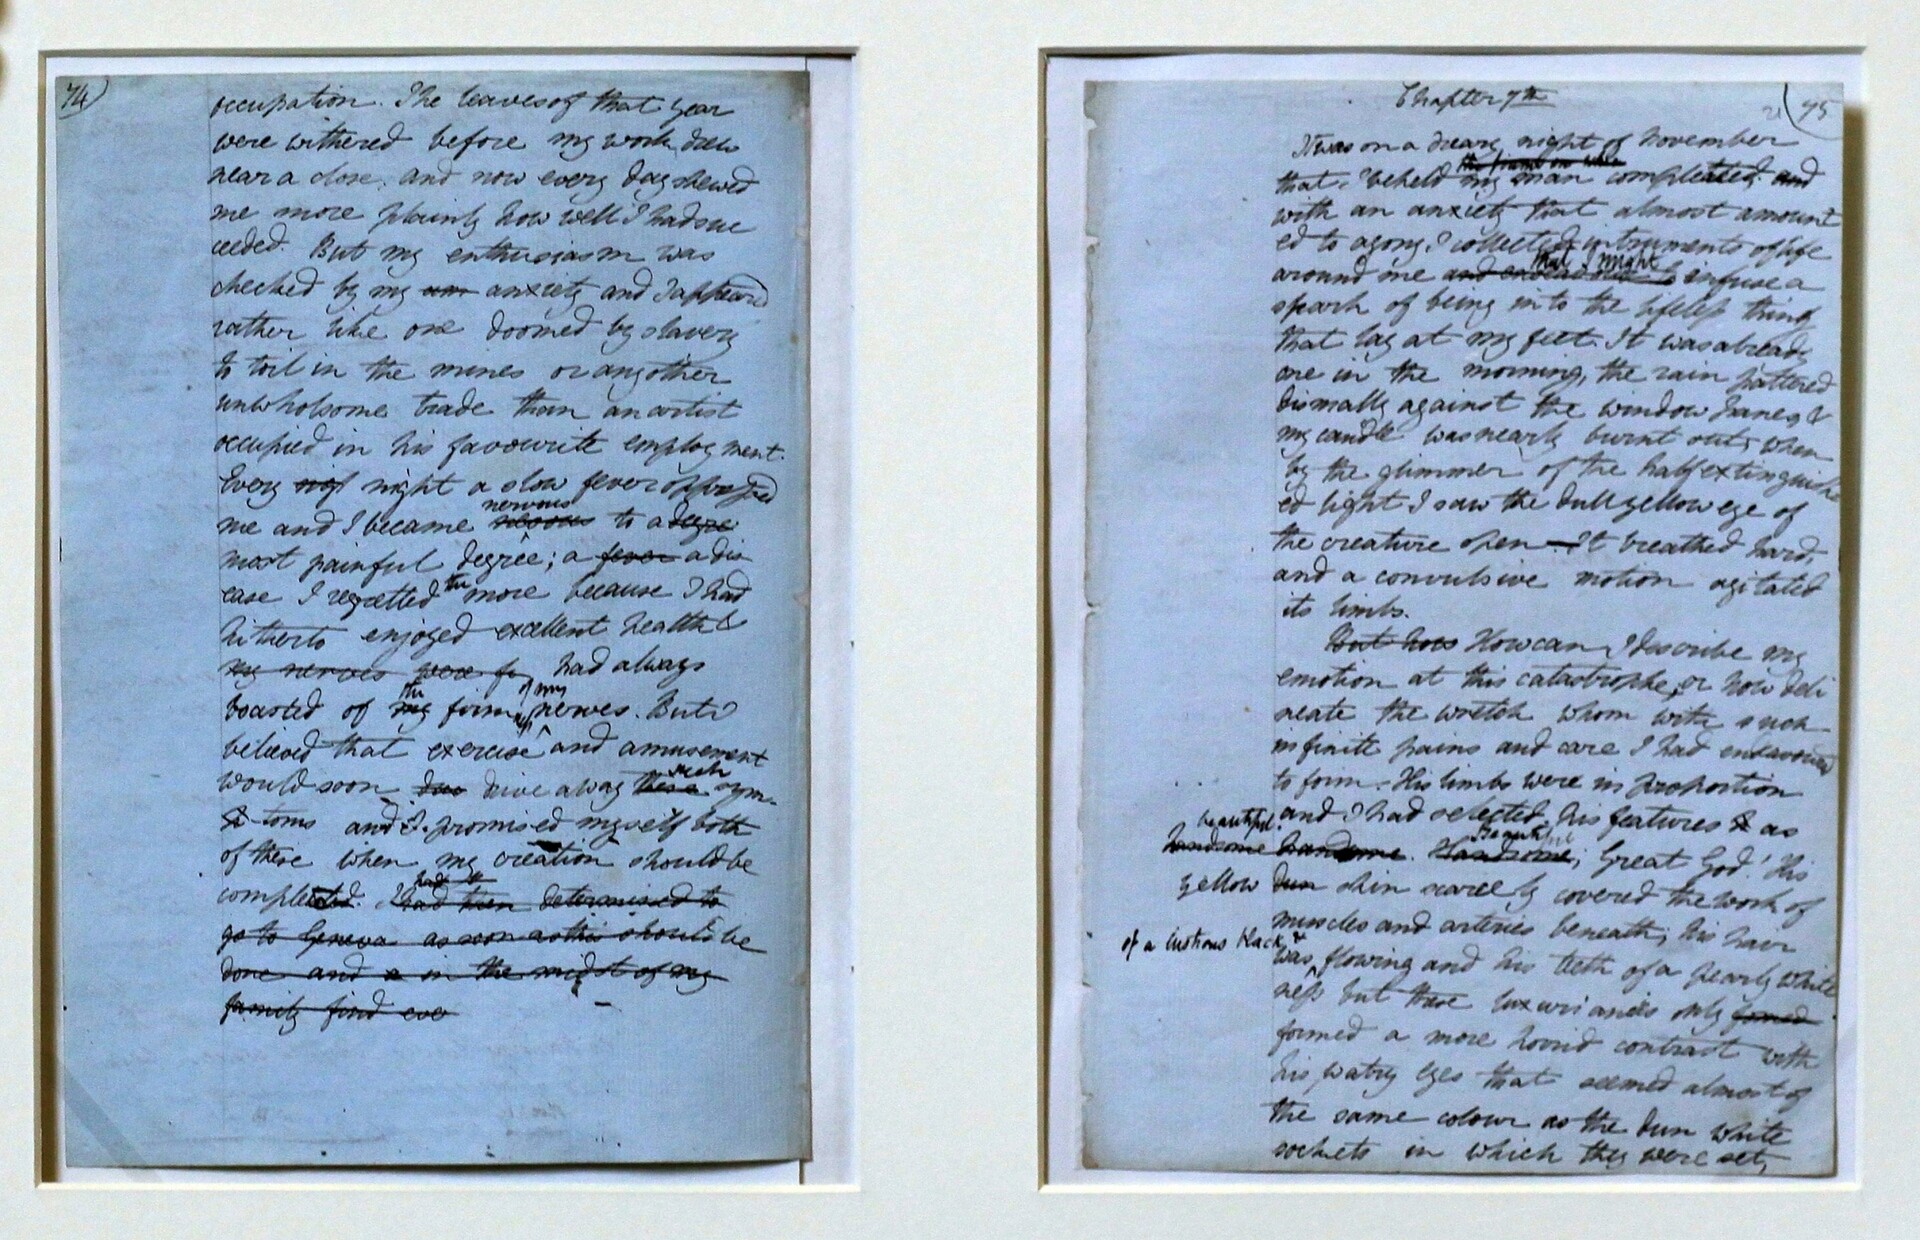 74)
occupation. The leaves of that year
were withered before my work drew
near a close. and now every day shewed
me more plainly how well I had suc
ceeded. But my enthusiasm was
checked by my anxiety and I appeared
rather like one doomed by slavery
to toil in the mines or any other
unwholsome trade than an artist
occupied in his favourite employment.
Every nigt night a slow fever oppressed
nervous
me and I became to a degre
most painful degree; a fever a dis
ease I regretted the more because I had
hitherto enjoyed excellent health &
my nerves were fi had always
the of my
boasted of my firm nerves. But I
believed that exercise and amusement
such
would soon drive away these sym-
toms and I promised myself both
of these when my creation should be
had
compleated. I had then determined to
go to Geneva as soon as this should be
done and in the midst of my
family find eve
Chapter 7th
21 (75
It was on a dreary night of November
the frame on whic
that I beheld my man compleated and
with an anxiety that almost amount
ed to agony. I collected instruments of life
that I might
around me and endeavour to infuse a
spark of being into the lifeless thing
that lay at my feet. It was already
one in the morning, the rain pattered
dismally against the window panes, &
my candle was nearly burnt out, when
by the glimmer of the half extinguish
ed light I saw the dull yellow eye of
the creature open—It breathed hard,
and a convulsive motion agitated
its limbs.
But how How can I describe my
emotion at this catastrophe, or how deli
neate the wretch whom with such
infinite pains and care I had endavoured
to form. His limbs were in proportion
and I had selected his features as
beautiful. Beautiful
handsome handsome. Handsome; Great God! His
yellow dun skin scarcely covered the work of
muscles and arteries beneath; his hair
of a lustrous black &
was flowing and his teeth of a pearly white
ness but these luxuriancies only formed
formed a more horrid contrast with
his watry eyes that seemed almost of
the same colour as the dun white
sockets in which they were set,